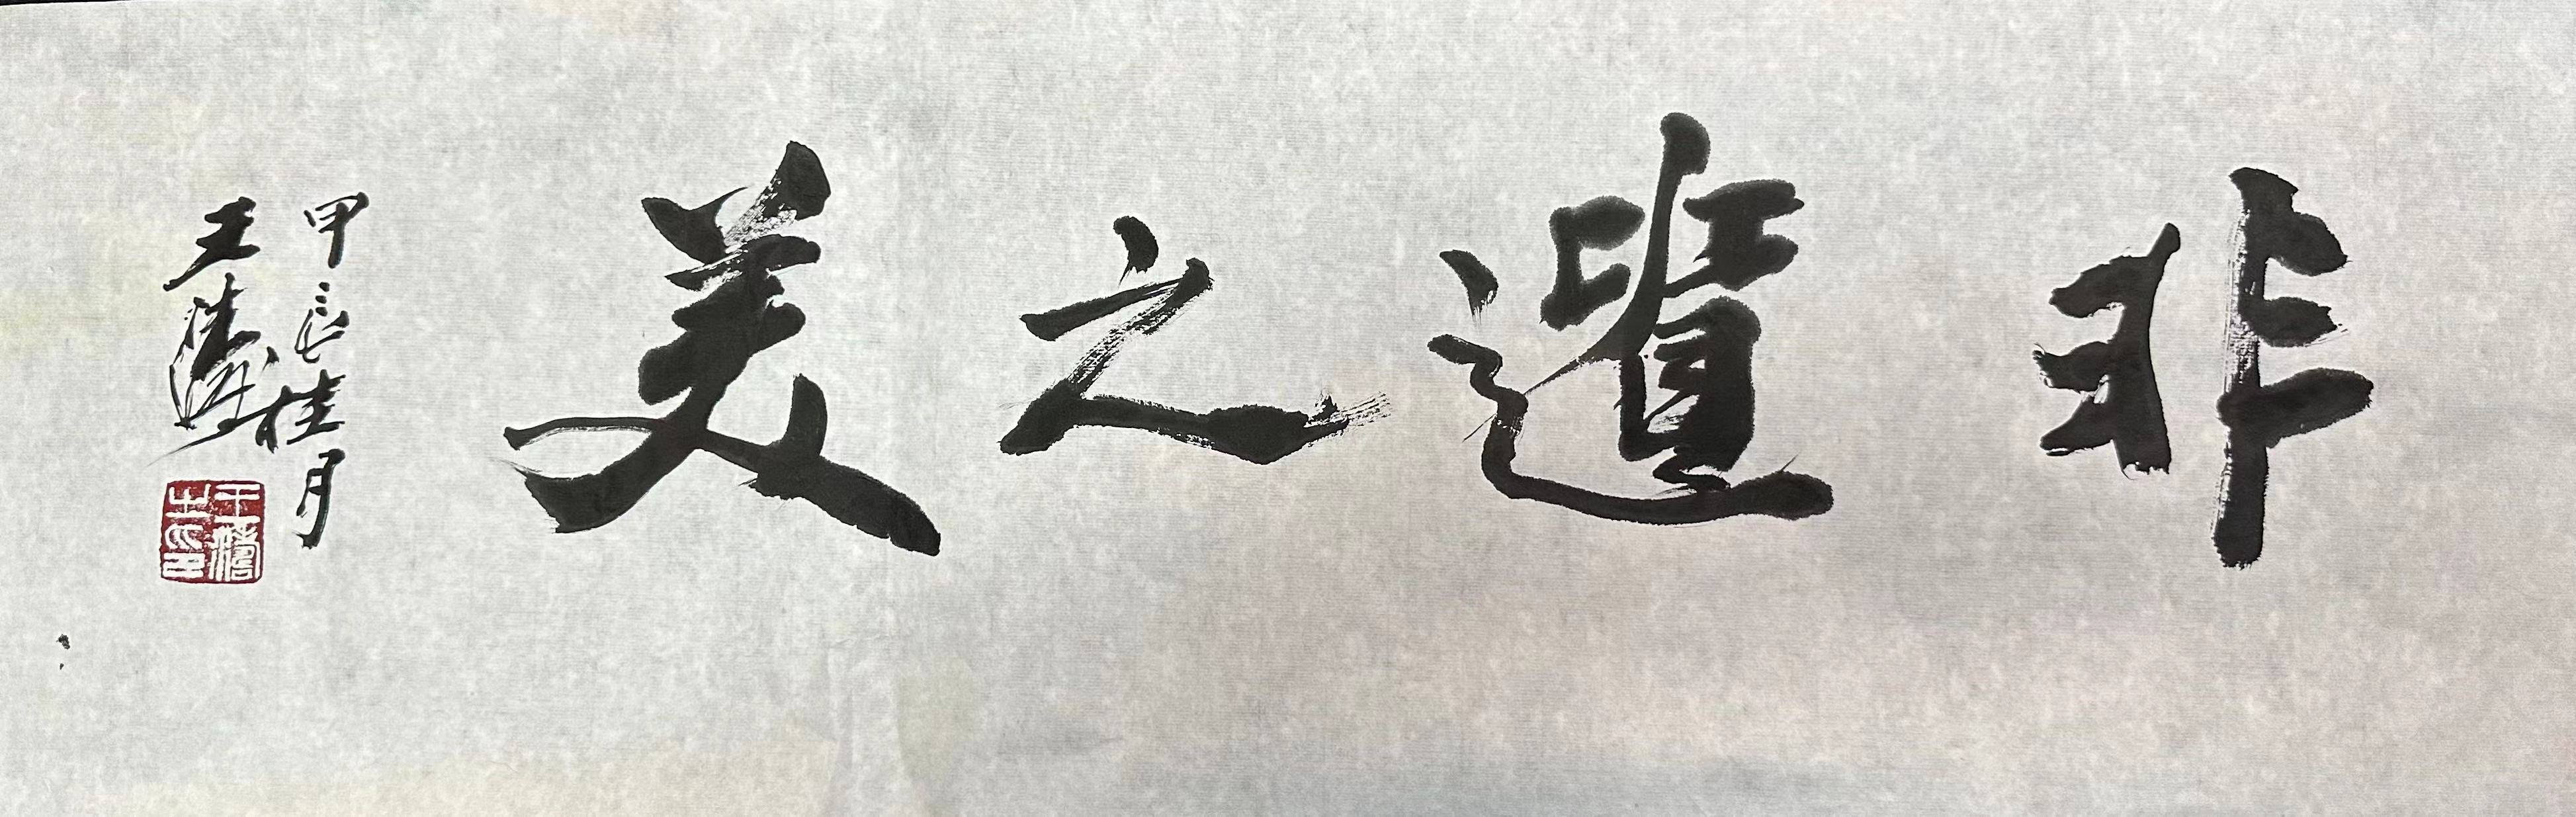 非遺之美
甲辰桂月
王